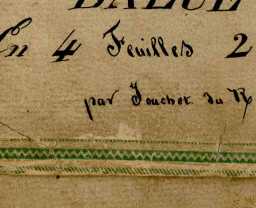 BALUE
En 4 Feuilles 2
par Jouchot du R